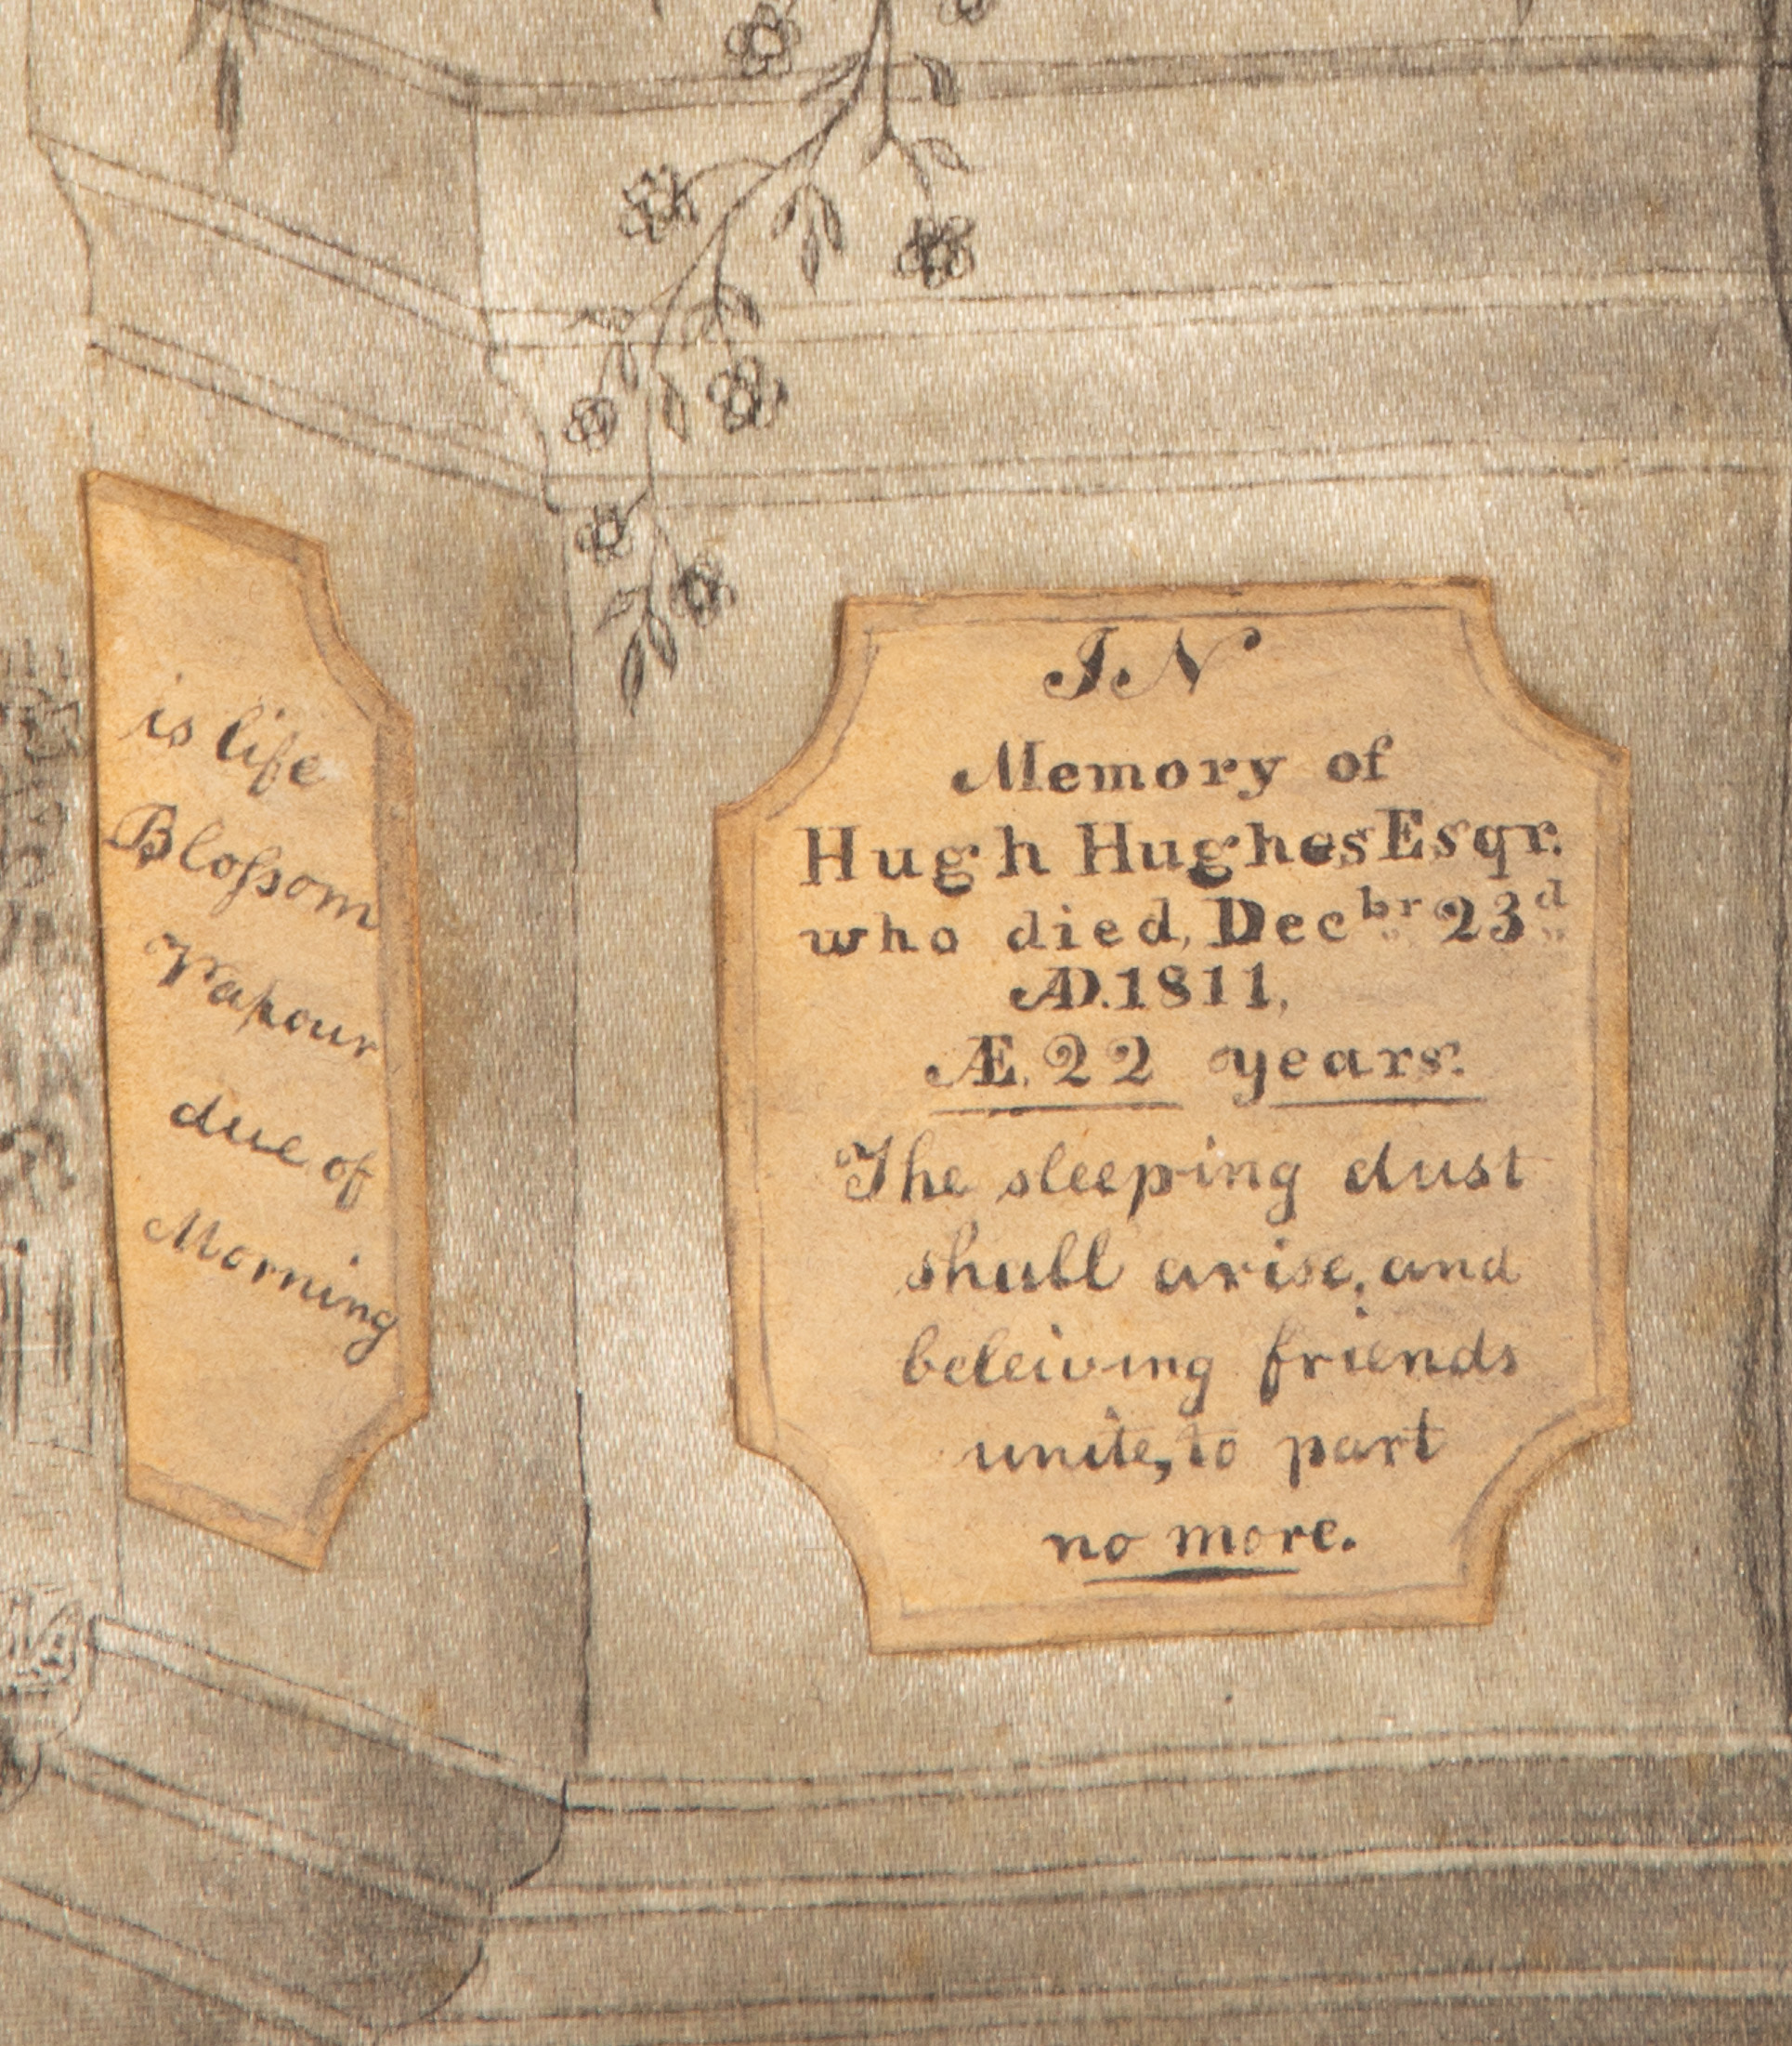 is life
Blossom
Vapour
due of
Morning
IN
Memory of
Hugh Hughes Esqr.
who died, Decbr 23d
AD. 1811,
Æ. 22 years.
The sleeping dust
shall arise, and
beleiving friends
unite, to part
no more.